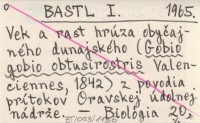 o BASTL I. 1965.
Vek a rast hrúza obyčaj-
ného dunajského (Gobio
gobio obtusirostris Valen-
ciennes, 1842) z povodia
prítokov Oravskej údolnej
nádrže. Biológia 20,